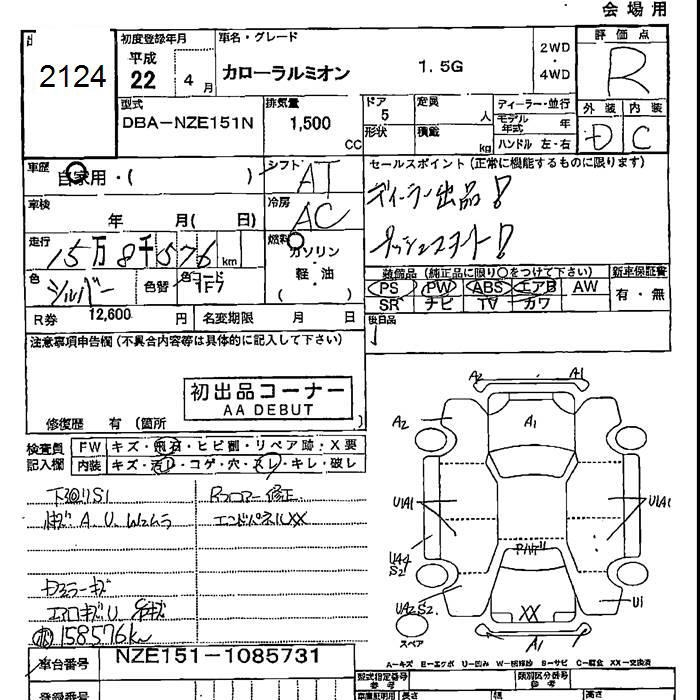 会場用
2124
初度登録年月
平成
22 4月
車名・グレード
カローラルミオン 1.5G
2WD
・
4WD
評価点
R
型式
DBA-NZE151N
排気量
1,500
CC
ドア
5
定員
人
形状
積載
kg
ディーラー・並行
モデル年式 年
ハンドル 左・右
外装 内装
D C
車歴
自家用・( )
シフト
AT
セールスポイント(正常に機能するものに限ります)
ディーラー出品!
車検
年 月( 日)
冷房
AC
走行
15万8千576km
燃料
ガソリン
軽・油
( )
色
シルバー
色替
色コード
1F7
装備品(純正品に限り○をつけて下さい)
新車保証書
PS PW ABS エアB AW
SR ナビ TV カワ
有・無
R券 12,600 円
名変期限 月 日
後日品
注意事項申告欄(不具合内容等は具体的に記入して下さい)
初出品コーナー
AA DEBUT
修復歴 有(箇所
検査員
記入欄
FW キズ・飛石・ヒビ割・リペア跡・X要
内装 キズ・汚レ・コゲ・穴・スレ・キレ・破レ
下廻りS1
Rフロアー修正
A.U.W2ムラ
エンドパネルXX
158576km
A2 A1
A2
A1
U1A1
U1A1
S2
UA2 S2
U1
XX
A1
スペア
車台番号 NZE151-1085731
A-キズ E-エクボ U-凹み W-補修跡 S-サビ C-腐食 XX-交換済
登録番号
型式指定番号
参考
類別区分番号
参考
長さ
幅
高さ